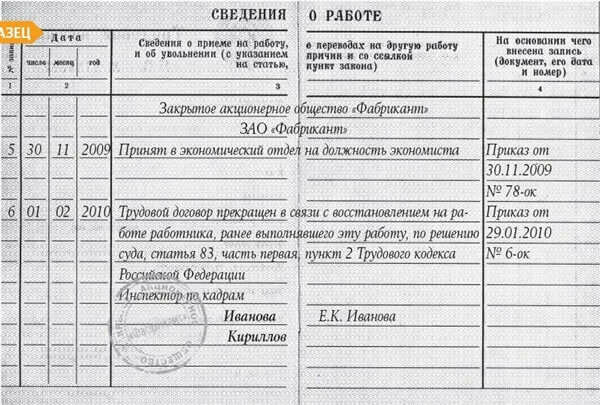 АЗЕЦ
СВЕДЕНИЯ О РАБОТЕ
№ записи
Дата
число месяц год
Сведения о приеме на работу, о переводах на другую работу
и об увольнении (с указанием причин и со ссылкой
на статью, пункт закона)
На основании чего
внесена запись
(документ, его дата
и номер)
1 2 3 4
Закрытое акционерное общество «Фабрикант»
ЗАО «Фабрикант»
5 30 11 2009 Принят в экономический отдел на должность экономиста Приказ от
30.11.2009
№ 78-ок
6 01 02 2010 Трудовой договор прекращен в связи с восстановлением на ра- Приказ от
боте работника, ранее выполнявшего эту работу, по решению 29.01.2010
суда, статья 83, часть первая, пункт 2 Трудового кодекса № 6-ок
Российской Федерации
Инспектор по кадрам
Иванова Е.К. Иванова
Кириллов
ОБЩЕСТВО